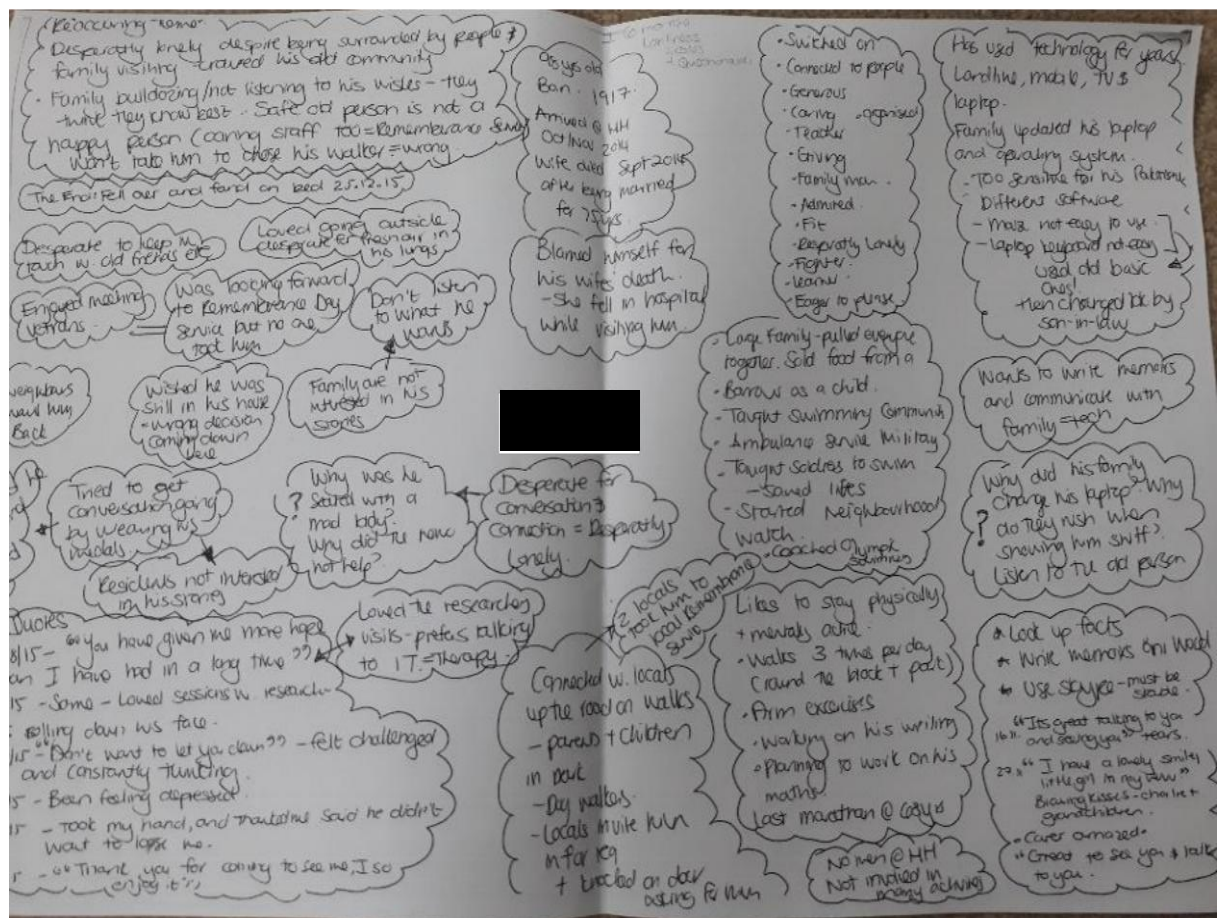 Reoccuring theme
- Desperatly lonely despite being surrounded by people &
family visiting craved his old community
- Family bulldozing/not listening to his wishes - they
think they know best. Safe old person is not a
happy person (caring staff too = Remembrance
Won't take him to chose his walker = wrong
The End: Fell over and found on bed 25.12.15
Desperate to keep in
touch w. old friends etc
Loved going outside
desperate for fresh air in
his lungs
Enjoyed meeting
vetrans.
Was looking forward
to Remembrance Day
service but no one
took him
Don't listen
to what he
wants
neighbours
want him
Back
Wished he was
still in his house
- wrong decision
coming down
here
Family are not
intrested in his
stories
Tried to get
conversation going
by wearing his
medals
? Why was he
seated with a
mad lady?
Why did the home
not help?
Desperate for
conversation &
connection = Desperatly
Lonely.
Residents not intersted
in his stories
Loved the researcher
visits - prefers talking
to IT. = Therapy.
Quotes
8/15 - "You have given me more hope
an I have had in a long time"
15 - Same - Loved sessions w.
rolling down his face.
/15 - "Don't want to let you down" - felt challenged
and constantly thinking.
5 - Been feeling depressed
15 - Took my hand, and thanked me said he didn't
want to lose me.
5 - "Thank you for coming to see me, I so
enjoy it"
98 yrs old
Born. 1917.
Arrived @ HH
Oct/Nov 2014
Wife died Sept 2014
after being married
for 75yrs.
Blamed himself for
his wifes' death.
- She fell in hospital
while visiting him.
- Switched on
- Connected to people
- Generous
- Caring - organised
- Teacher
- Giving
- Family man.
- Admired.
- Fit
- Desperatly Lonely
- Fighter
- Learner
- Eager to please.
- Large Family - pulled everyone
together. Sold food from a
- Barrow as a child.
- Taught swimming
- Ambulance service Military
- Taught soldiers to swim
- saved lifes
- Started Neighbourhood
watch.
- Coached Olympic
swimmers
2 locals
took him to
local Remembrance
service
Connected w. locals
up the road on walks
- parents + children
in park
- Day walkers.
- Locals invite him
in for tea
+ knocked on door
asking for him
Likes to stay physically
+ mentally active.
- Walks 3 times per day
(round the block + park)
- Arm excersises
- Working on his writing
- Planning to work on his
maths
Last marathon @
No men @ HH
Not involved in
many activities
Has used technology for years
Landline, mobile, TV &
laptop.
Family updated his laptop
and operating system.
- Too sensitive for his
Different software
- mouse not easy to use.
- laptop keyboard not easy
used old basic
ones!
then changed back by
son-in-law
Wants to write memoirs
and communicate with
family = tech
? Why did his family
change his laptop? Why
do they rush when
showing him stuff?
Listen to the old person
* Look up facts
* Write memoirs on Word
* Use Skype - must be
stable.
"Its great talking to you
and seeing you" tears.
"I have a lovely smiley
little girl in my view"
Blowing kisses -
grandchildren.
- Carer amazed.
"Great to see you & talk
to you.